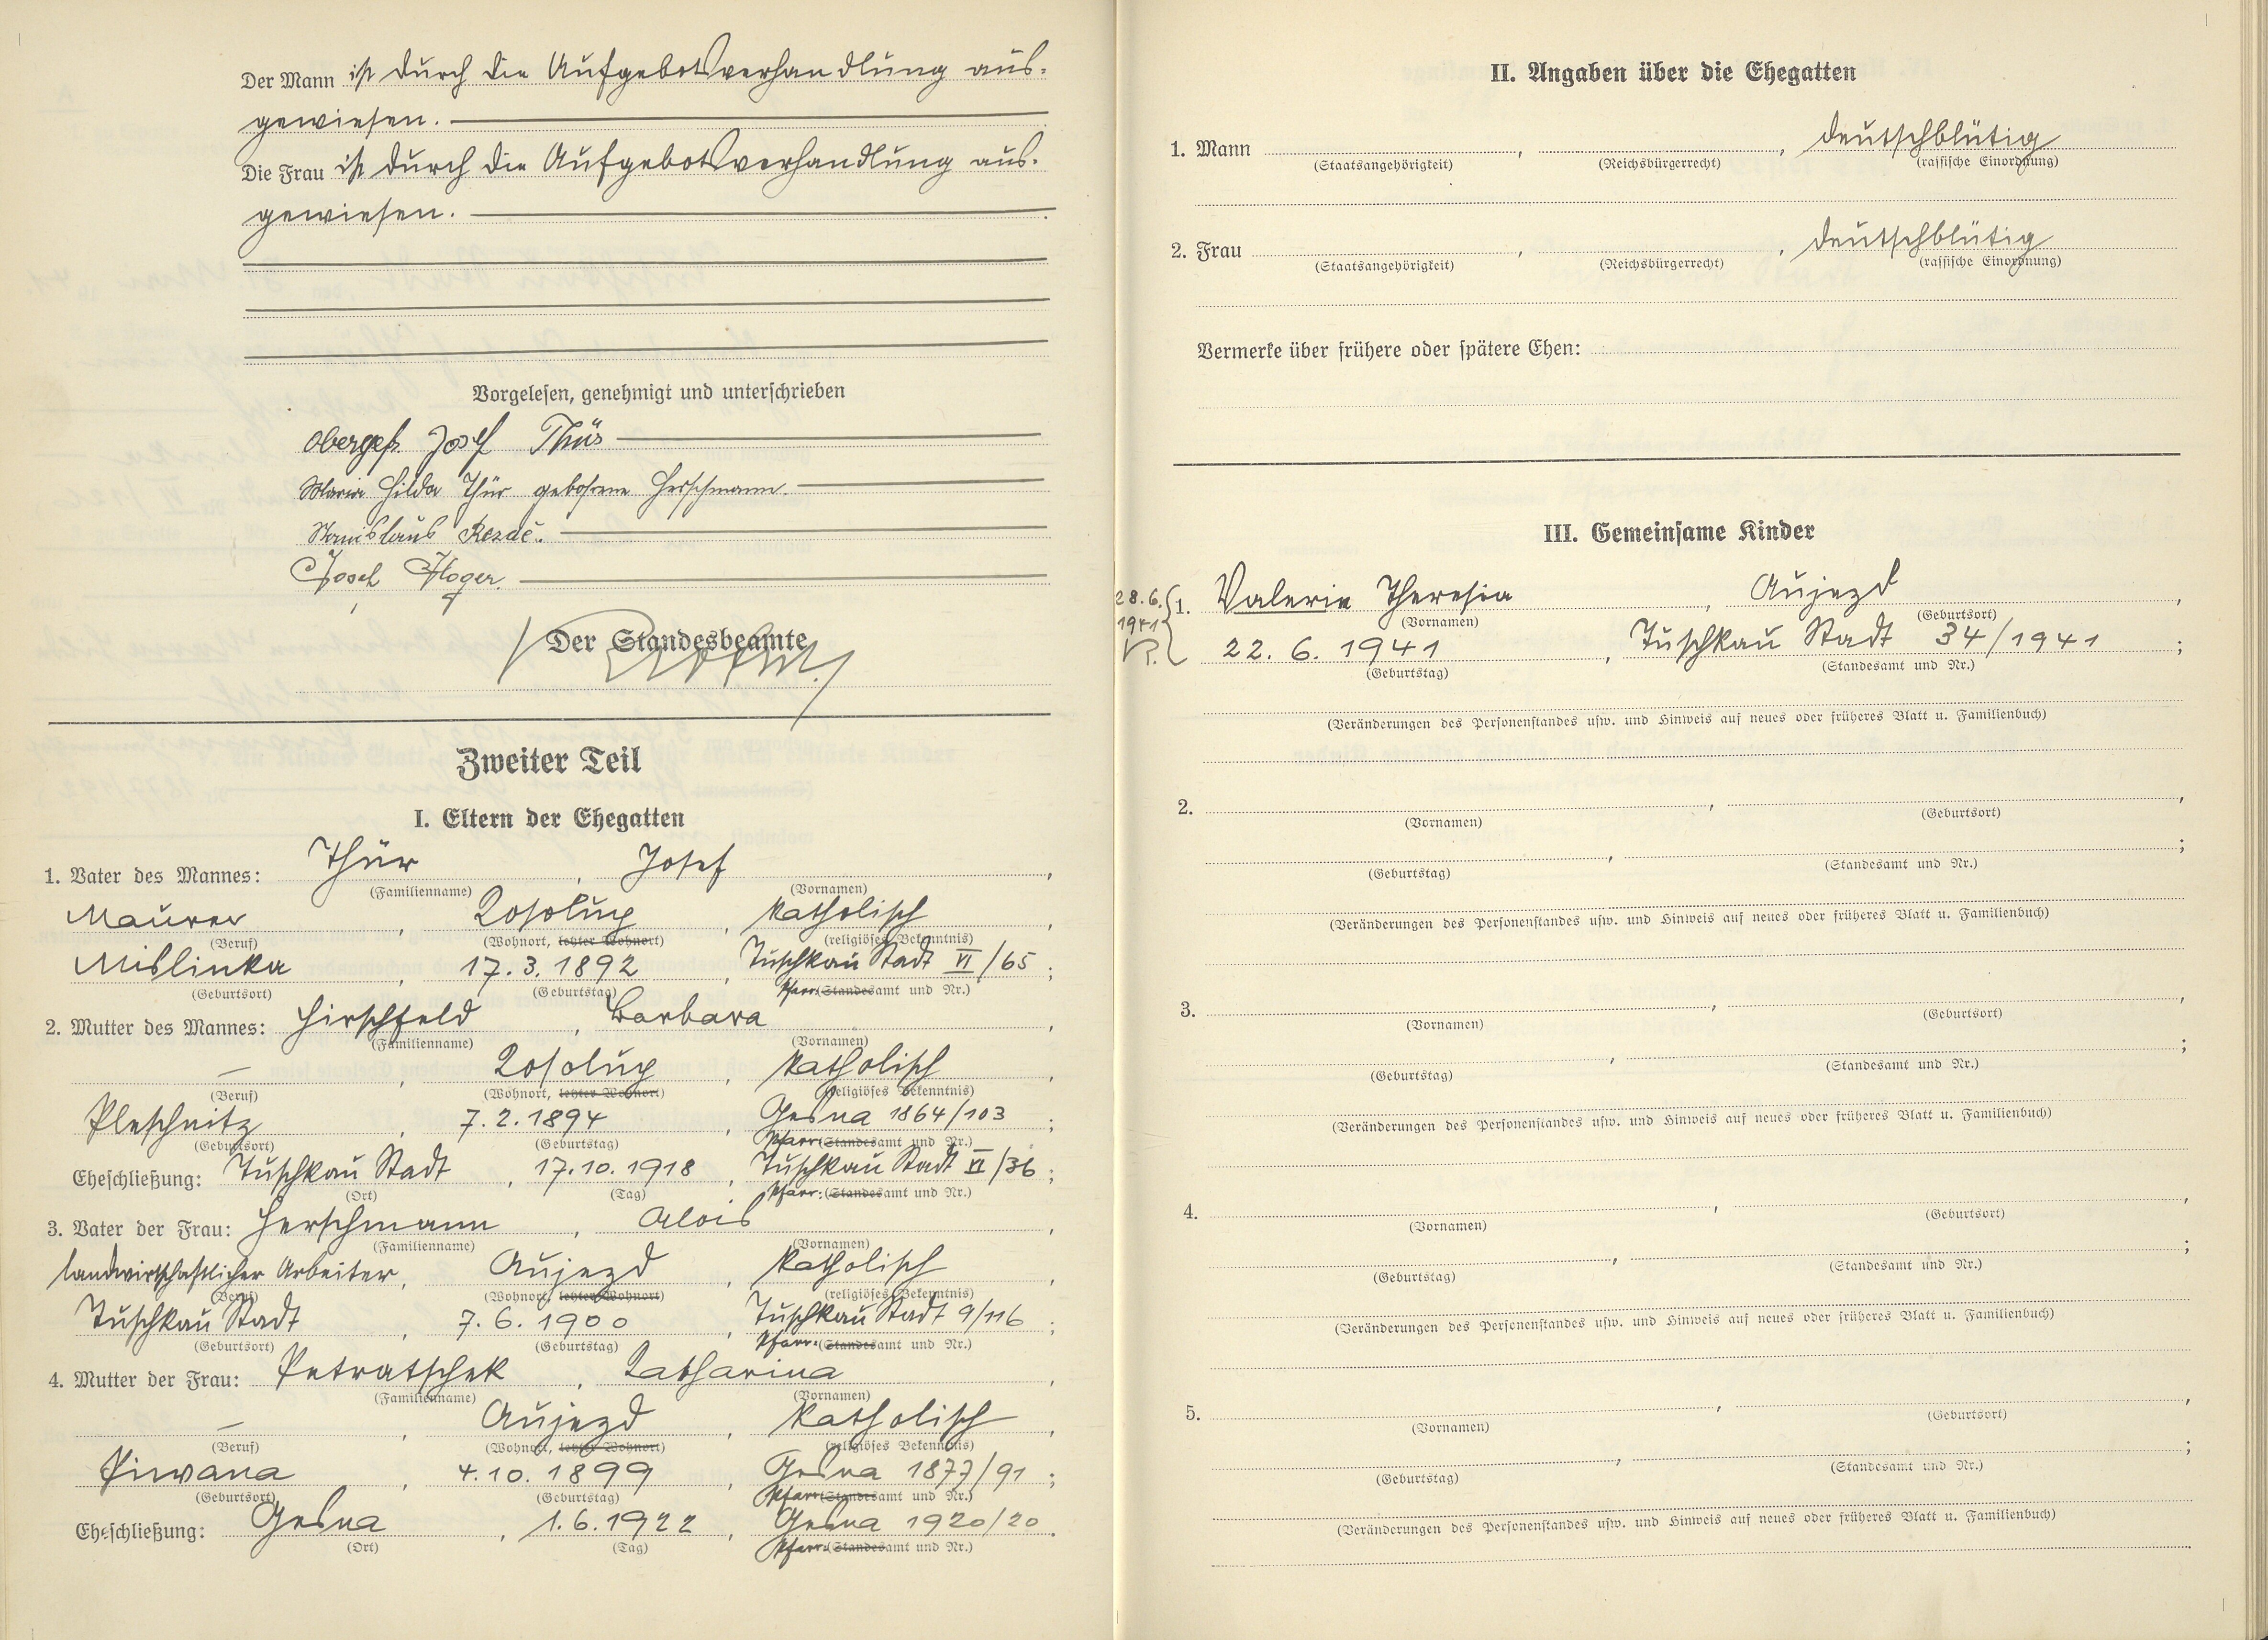 Der Mann ist durch die Aufgebotsverhandlung aus-
gewiesen.
Die Frau ist durch die Aufgebotsverhandlung aus-
gewiesen.
Vorgelesen, genehmigt und unterschrieben
Obergefr. Josef Thür
Maria Hilda Thür geborene Herschmann.
Stanislaus
Josef
Der Standesbeamte
Zweiter Teil
I. Eltern der Ehegatten
1. Vater des Mannes: Thür, Josef,
(Familienname) (Vornamen)
Maurer, Kosolup, katholisch,
(Beruf) (Wohnort, letzter Wohnort) (religiöses Bekenntnis)
Mislinka, 17. 3. 1892, Tuschkau Stadt VI/65;
(Geburtsort) (Geburtstag) Pfarr-(Standesamt und Nr.)
2. Mutter des Mannes: Hirschfeld, Barbara,
(Familienname) (Vornamen)
—, Kosolup, katholisch,
(Beruf) (Wohnort, letzter Wohnort) (religiöses Bekenntnis)
Pleschnitz, 7. 2. 1894, Gesna 1864/103;
(Geburtsort) (Geburtstag) Pfarr-(Standesamt und Nr.)
Eheschließung: Tuschkau Stadt, 17. 10. 1918, Tuschkau Stadt VI/36;
(Ort) (Tag) Pfarr-(Standesamt und Nr.)
3. Vater der Frau: Herschmann, Alois,
(Familienname) (Vornamen)
landwirtschaftlicher Arbeiter, Aujezd, katholisch,
(Beruf) (Wohnort, letzter Wohnort) (religiöses Bekenntnis)
Tuschkau Stadt, 7. 6. 1900, Tuschkau Stadt 9/116;
(Geburtsort) (Geburtstag) Pfarr-(Standesamt und Nr.)
4. Mutter der Frau: Petratschek, Katharina,
(Familienname) (Vornamen)
—, Aujezd, katholisch,
(Beruf) (Wohnort, letzter Wohnort) (religiöses Bekenntnis)
Piwana, 4. 10. 1899, Gesna 1877/91;
(Geburtsort) (Geburtstag) Pfarr-(Standesamt und Nr.)
Eheschließung: Gesna, 1. 6. 1922, Gesna 1920/20.
(Ort) (Tag) Pfarr-(Standesamt und Nr.)
II. Angaben über die Ehegatten
1. Mann , , deutschblütig
(Staatsangehörigkeit) (Reichsbürgerrecht) (rassische Einordnung)
2. Frau , , deutschblütig
(Staatsangehörigkeit) (Reichsbürgerrecht) (rassische Einordnung)
Vermerke über frühere oder spätere Ehen:
III. Gemeinsame Kinder
28. 6.
1941
1. Valerie Theresia, Aujezd,
(Vornamen) (Geburtsort)
22. 6. 1941, Tuschkau Stadt 34/1941;
(Geburtstag) (Standesamt und Nr.)
(Veränderungen des Personenstandes usw. und Hinweis auf neues oder früheres Blatt u. Familienbuch)
2. , ,
(Vornamen) (Geburtsort)
, ;
(Geburtstag) (Standesamt und Nr.)
(Veränderungen des Personenstandes usw. und Hinweis auf neues oder früheres Blatt u. Familienbuch)
3. , ,
(Vornamen) (Geburtsort)
, ;
(Geburtstag) (Standesamt und Nr.)
(Veränderungen des Personenstandes usw. und Hinweis auf neues oder früheres Blatt u. Familienbuch)
4. , ,
(Vornamen) (Geburtsort)
, ;
(Geburtstag) (Standesamt und Nr.)
(Veränderungen des Personenstandes usw. und Hinweis auf neues oder früheres Blatt u. Familienbuch)
5. , ,
(Vornamen) (Geburtsort)
, ;
(Geburtstag) (Standesamt und Nr.)
(Veränderungen des Personenstandes usw. und Hinweis auf neues oder früheres Blatt u. Familienbuch)